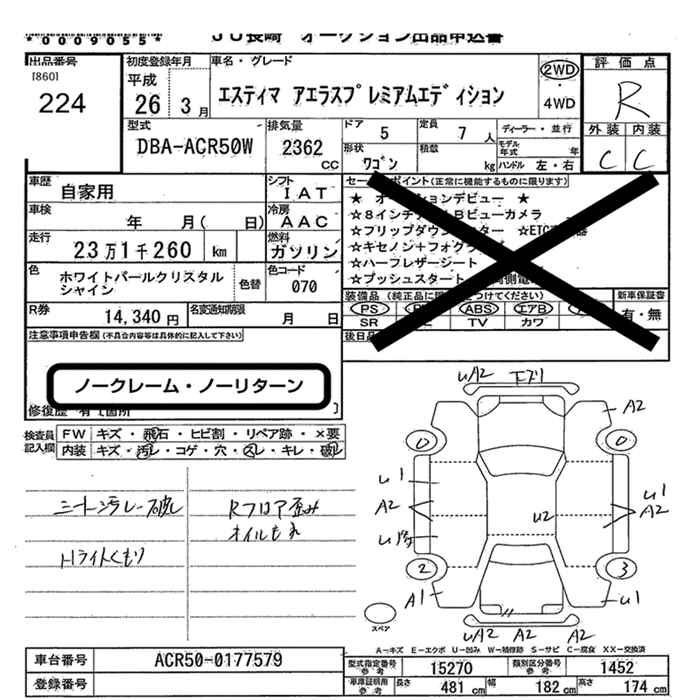 *0009055*
JU長崎 オークション出品申込書
出品番号
[860]
224
初度登録年月
平成
26 3月
車名・グレード
エスティマ アエラスプレミアムエディション
2WD
・
4WD
評価点
R
外装 内装
C C
型式
DBA-ACR50W
排気量
2362
CC
ドア 5
定員 7 人
形状
ワゴン
積載
kg
ディーラー・並行
モデル
年式 年
ハンドル 左・右
車歴
自家用
シフト
IAT
車検
年 月( 日)
冷房
AAC
走行
23万1千260 km
燃料
ガソリン
色
ホワイトパールクリスタル
シャイン
色替
色コード
070
R券
14,340 円
名変通知期限
月 日
注意事項申告欄(不具合内容等は具体的に記入して下さい)
ノークレーム・ノーリターン
修復歴 有[箇所 ]
セールスポイント(正常に機能するものに限ります)
★ オークションデビュー ★
☆8インチ Bビューカメラ
☆フリップダウン ター ☆ETC
☆キセノン+フォグ
☆ハーフレザーシート
☆プッシュスタート 側電
装備品(純正品に つけてください)
PS ABS エアB
SR TV カワ
新車保証書
有・無
後日品
検査員
記入欄
FW キズ・飛石・ヒビ割・リペア跡・×要
内装 キズ・汚レ・コゲ・穴・スレ・キレ・破レ
シート汚レ破レ
Hライトくもり
Rフロア歪み
オイルもれ
uA2 下ズリ
A2
0 0
u1
A2
u1
A2
u2
2 3
A1 u1
uA2 A2 A2
スペア
A-キズ E-エクボ U-凹み W-補修跡 S-サビ C-腐食 XX-交換済
車台番号
ACR50-0177579
登録番号
型式指定番号
参考
15270
類別区分番号
参考
1452
車庫証明用
参考
長さ 481 cm 幅 182 cm 高さ 174 cm